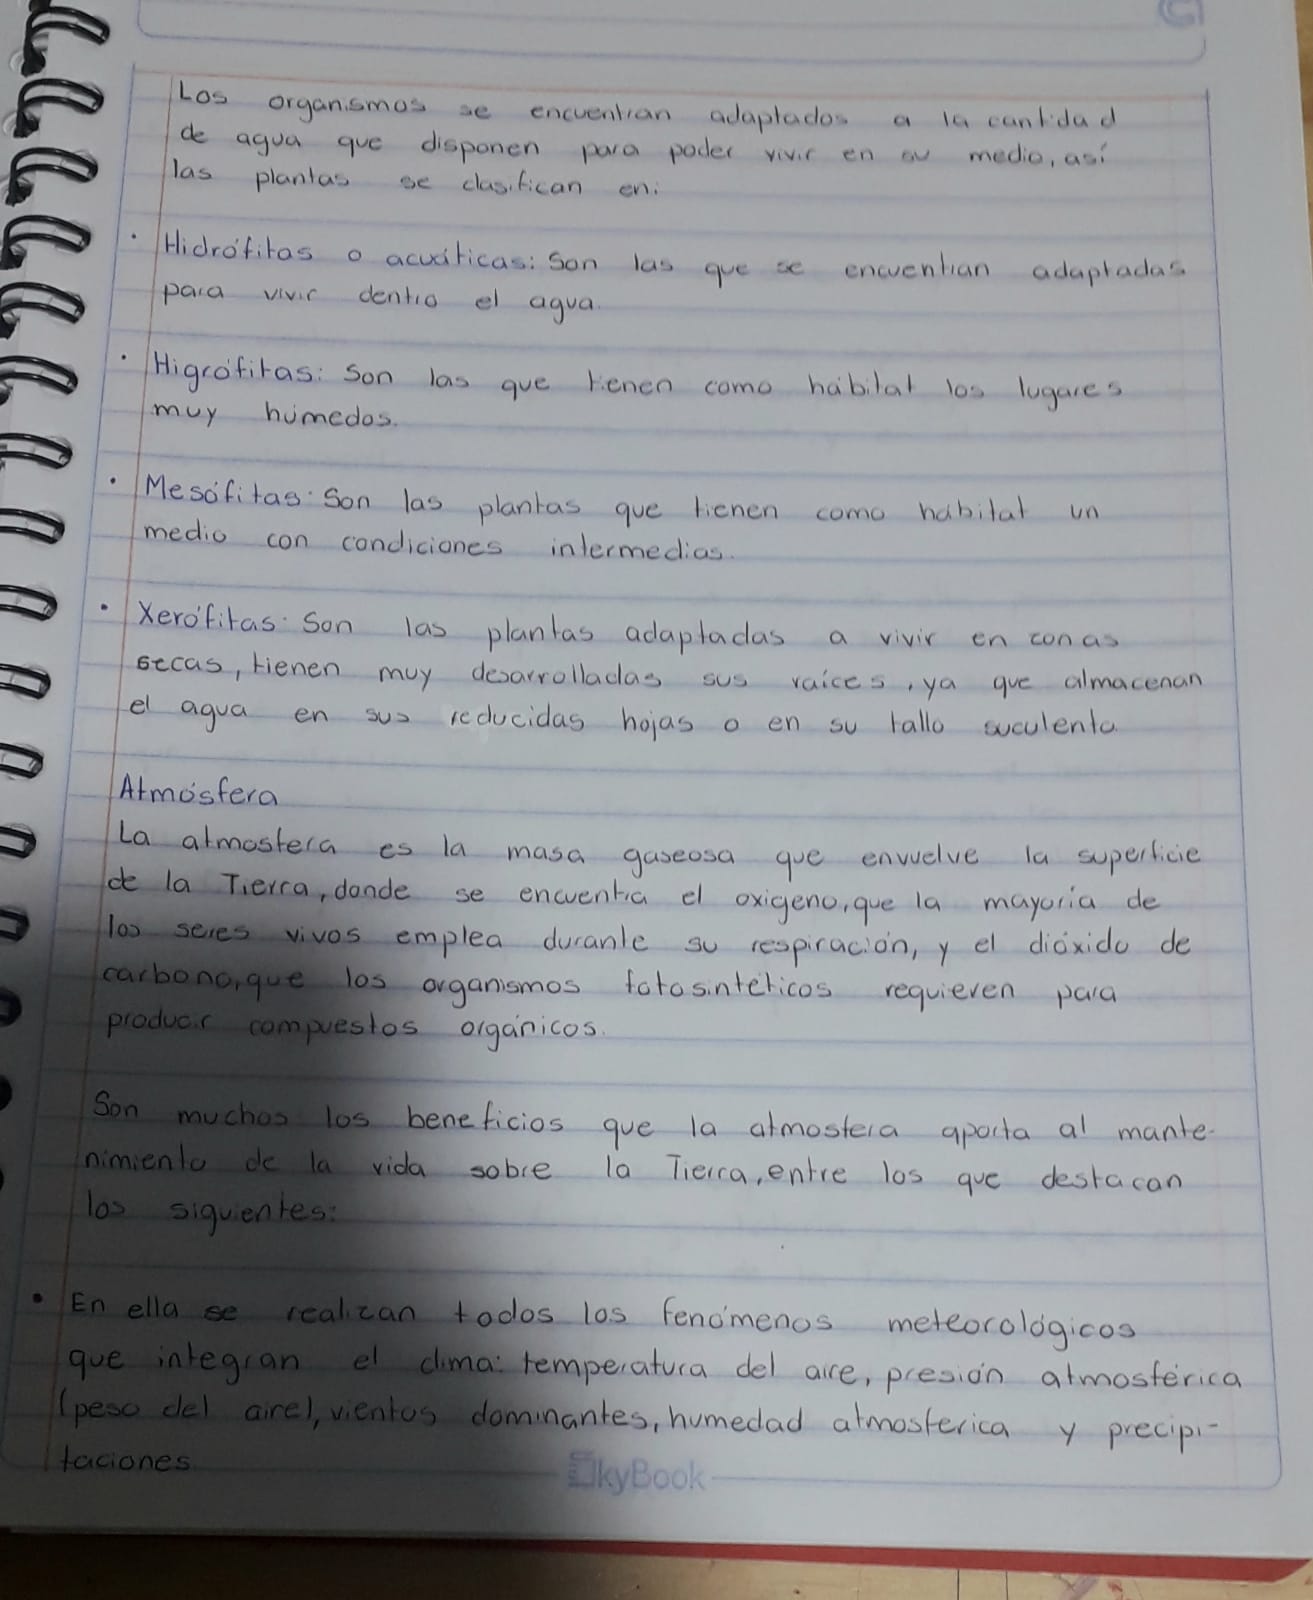 Los organismos se encuentran adaptados a la cantidad
de agua que disponen para poder vivir en su medio, así
las plantas se clasifican en:
· Hidrófitas o acuáticas: Son las que se encuentran adaptadas
para vivir dentro el agua.
· Higrófitas: Son las que tienen como hábitat los lugares
muy húmedos.
· Mesófitas: Son las plantas que tienen como hábitat un
medio con condiciones intermedias.
· Xerófitas: Son las plantas adaptadas a vivir en zonas
secas, tienen muy desarrolladas sus raíces, ya que almacenan
el agua en sus reducidas hojas o en su tallo suculento.
Atmósfera
La atmosfera es la masa gaseosa que envuelve la superficie
de la Tierra, donde se encuentra el oxigeno, que la mayoría de
los seres vivos emplea durante su respiración, y el dióxido de
carbono, que los organismos fotosintéticos requieren para
producir compuestos orgánicos.
Son muchos los beneficios que la atmosfera aporta al mante-
nimiento de la vida sobre la Tierra, entre los que destacan
los siguientes:
· En ella se realizan todos los fenómenos meteorológicos
que integran el clima: temperatura del aire, presión atmosférica
(peso del aire), vientos dominantes, humedad atmosferica y precipi-
taciones.
SkyBook